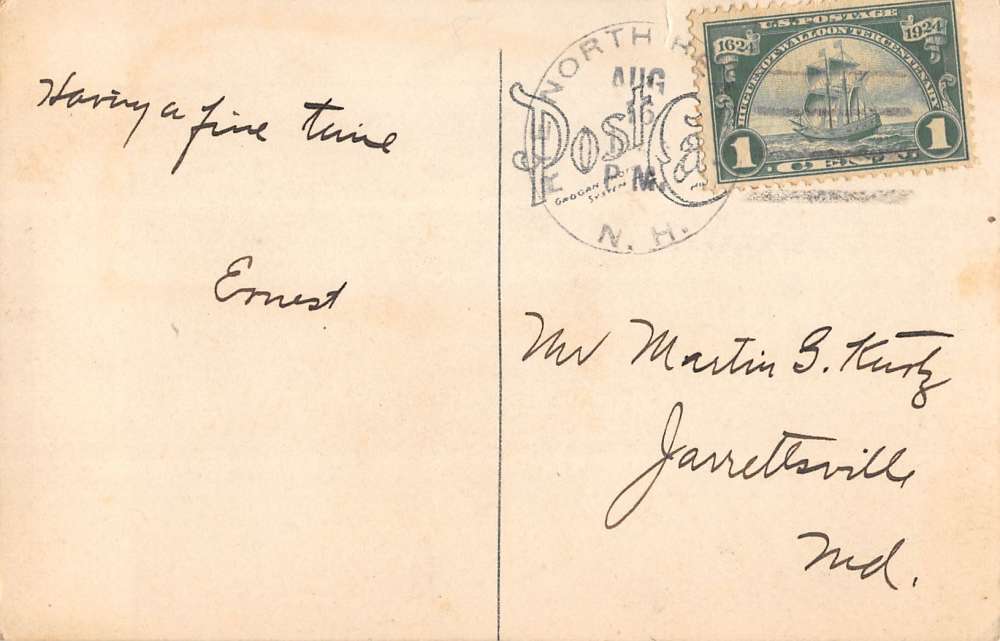 Having a fine time
Ernest
NORTH
AUG
16
P.M.
N. H.
Post
GROGAN
SYSTEM
U.S. POSTAGE
1624
1924
HUGUENOT-WALLOON TERCENTENARY
1 1
CENTS
Mr Martin G. Kurtz
Jarrettsville
Md.